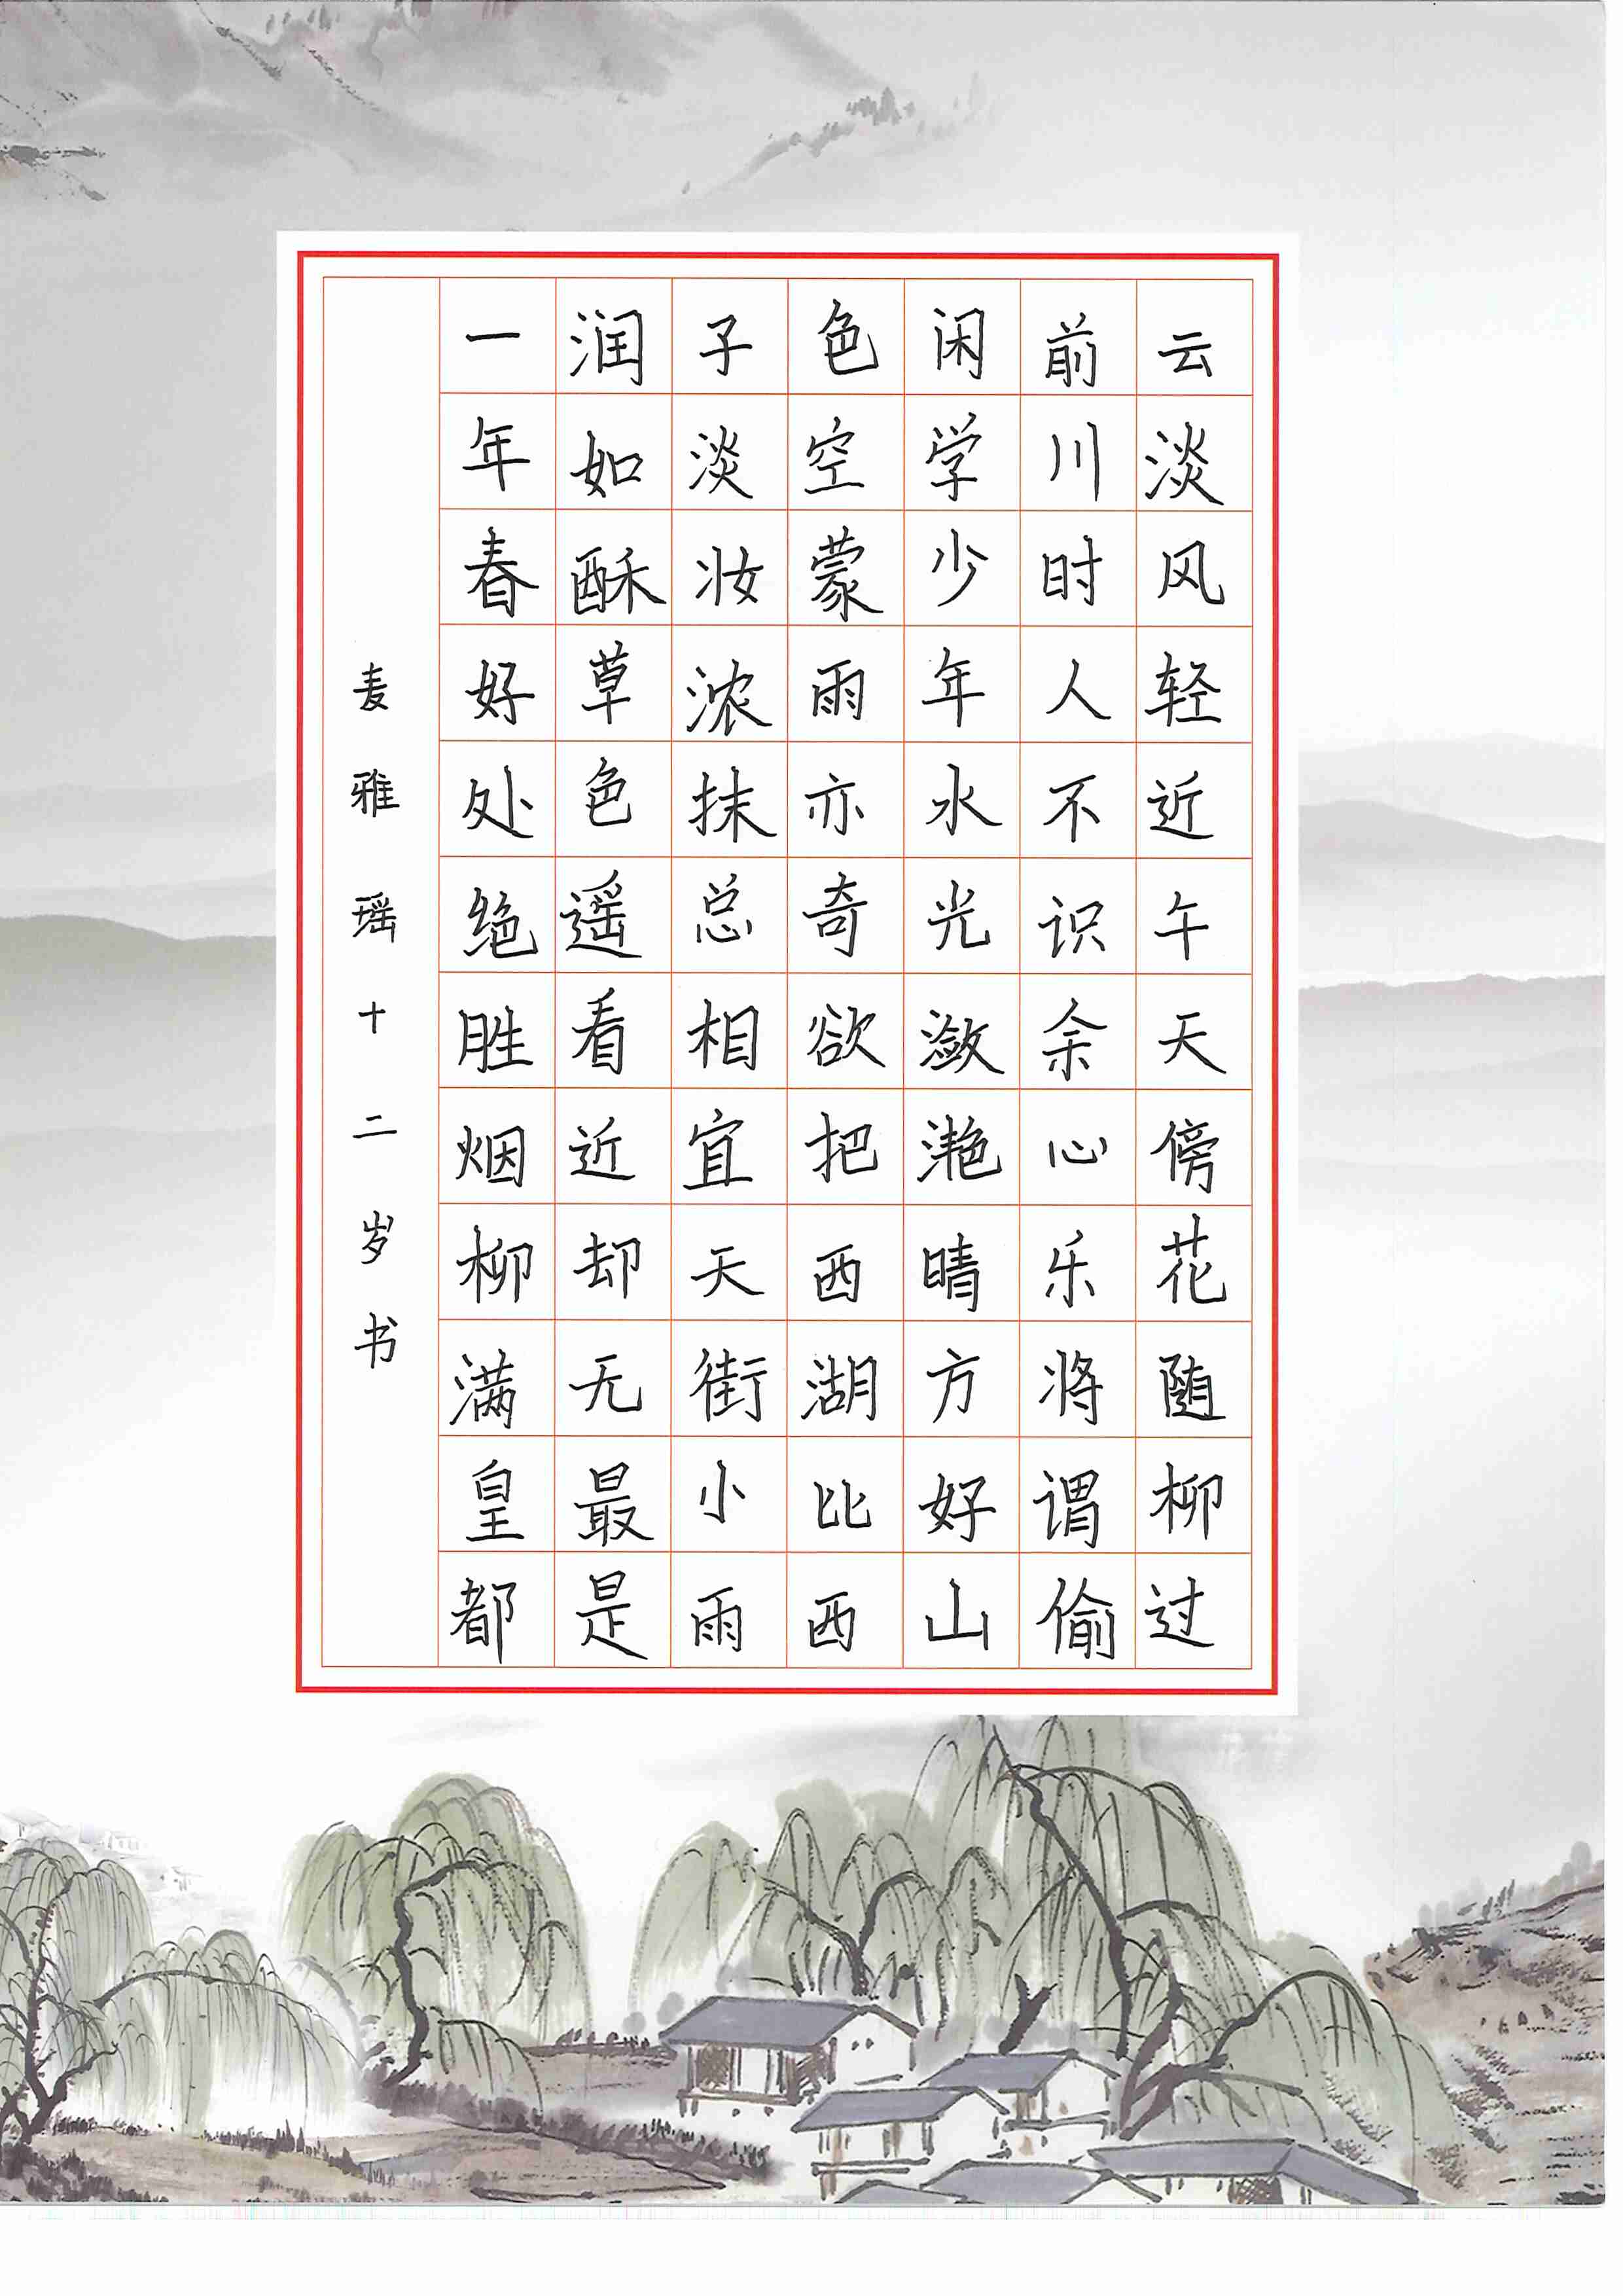 云淡风轻近午天傍花随柳过
前川时人不识余心乐将谓偷
闲学少年水光潋滟晴方好山
色空蒙雨亦奇欲把西湖比西
子淡妆浓抹总相宜天街小雨
润如酥草色遥看近却无最是
一年春好处绝胜烟柳满皇都
麦雅瑶十二岁书